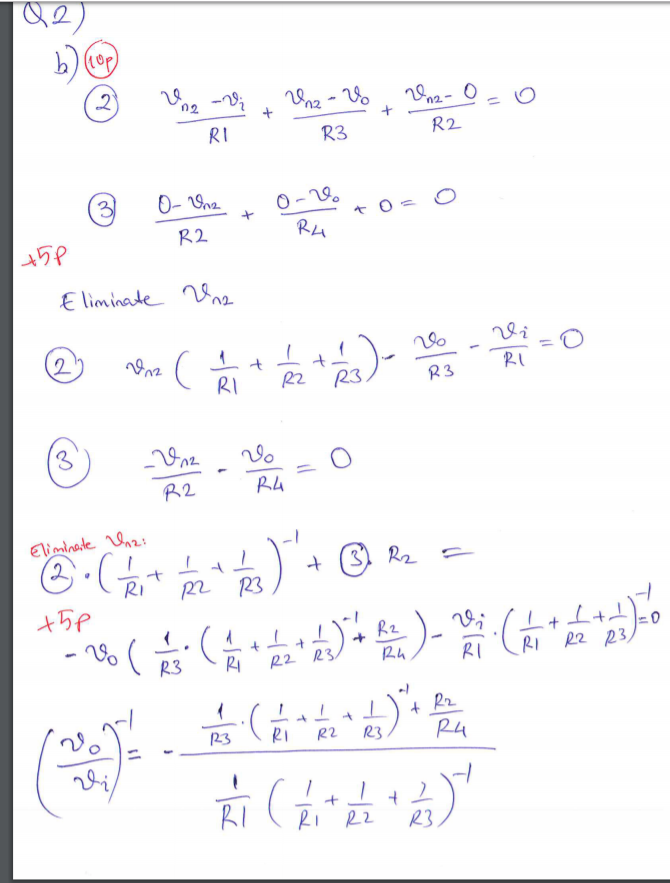 Q2)
b) 10p
② (𝑣n2 - 𝑣i)/R1 + (𝑣n2 - 𝑣o)/R3 + (𝑣n2 - 0)/R2 = 0
③ (0 - 𝑣n2)/R2 + (0 - 𝑣o)/R4 + 0 = 0
+5p
Eliminate 𝑣n2
② 𝑣n2 (1/R1 + 1/R2 + 1/R3) - 𝑣o/R3 - 𝑣i/R1 = 0
③ -𝑣n2/R2 - 𝑣o/R4 = 0
Eliminate 𝑣n2:
② · (1/R1 + 1/R2 + 1/R3)^-1 + ③. R2 =
+5p
-𝑣o (1/R3 · (1/R1 + 1/R2 + 1/R3)^-1 + R2/R4) - 𝑣i/R1 · (1/R1 + 1/R2 + 1/R3)^-1 = 0
(𝑣o/𝑣i)^-1 = - (1/R3 · (1/R1 + 1/R2 + 1/R3)^-1 + R2/R4) / (1/R1 (1/R1 + 1/R2 + 1/R3)^-1)